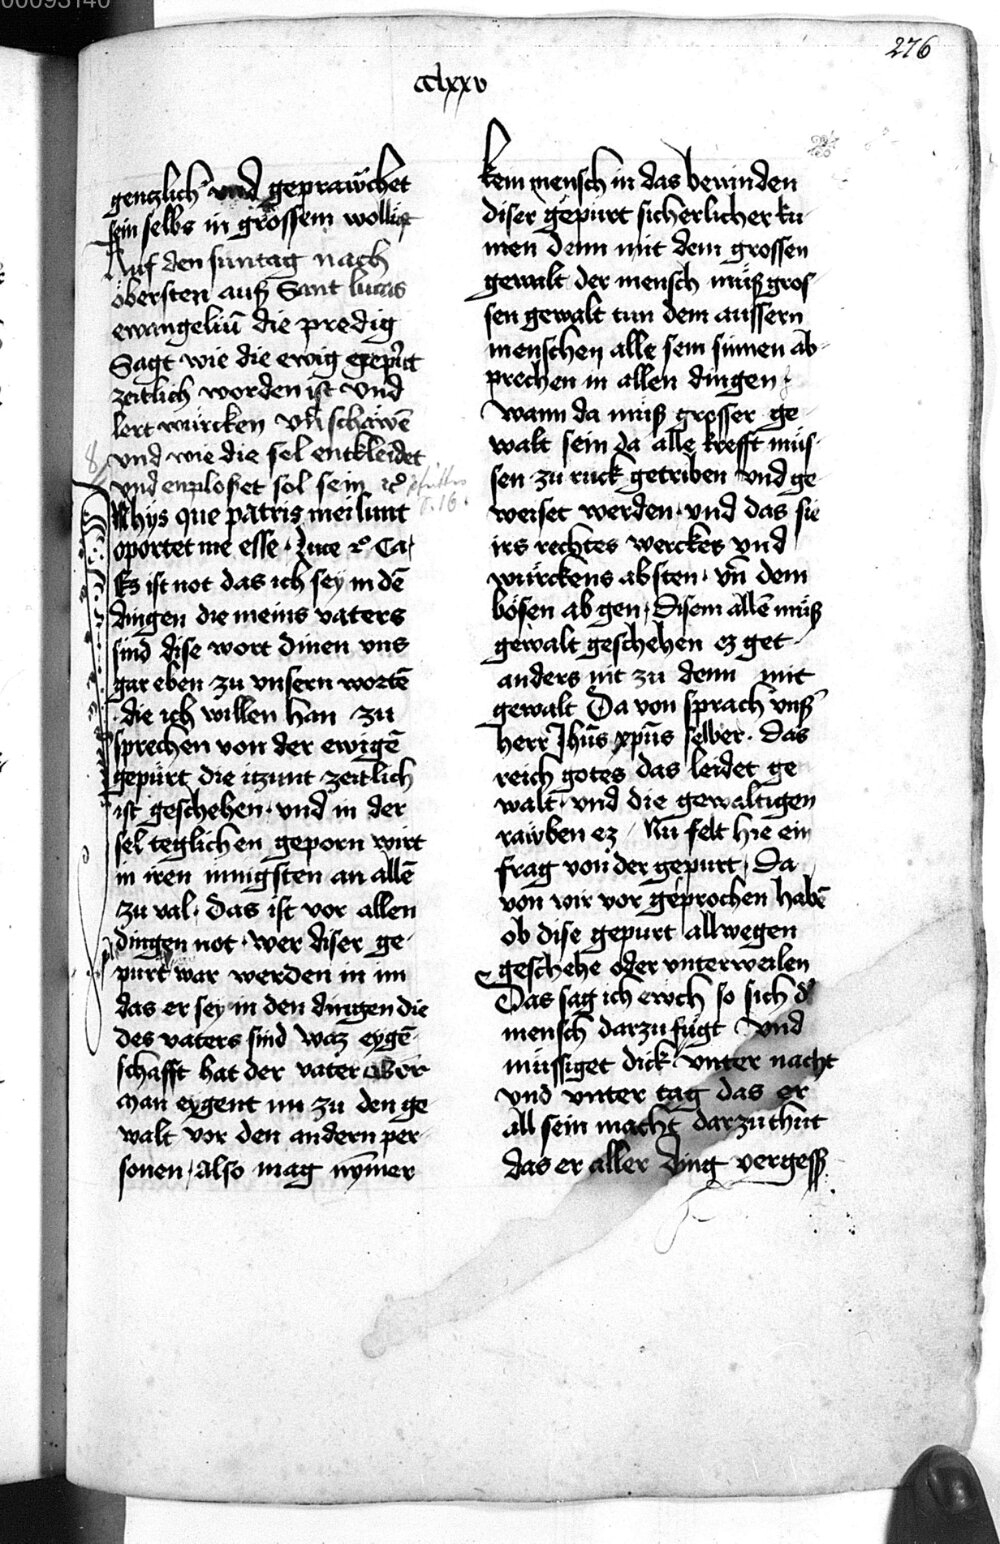 00093140
276
cclxxv
genczlich und geprawchet
sein selbs in grossem wollust
Auf den suntag nach
obersten auß Sant lucas
ewangeliū die predig
Sagt wie die ewig gepurt
zeitlich worden ist und
lert würcken vn̄ schawē
und wie die sel entkleidet
und enploset sol sein ꝛc
Jn hys que patris mei sunt
oportet me esse · luce 2º Ca
Es ist not das ich sey in dē
dingen die meins vaters
sind dise wort dinen uns
gar eben zu vnsern wortē
die ich willen han zu
sprechen von der ewigē
gepurt die itzunt zeitlich
ist geschehen · und in der
sel teglichen geporn wirt
in iren innigsten an allē
zu val · Das ist vor allen
dingen not · wer diser ge
purt war werden in im
das er sey in den dingen die
des vaters sind waz eygē
schafft hat der vater aber
man eygent im zu den ge
walt vor den andern per
sonen / Also mag nymer
kein mensch in das bevinden
diser gepurt sicherlicher ku
men denn mit dem grossen
gewalt der mensch muß gros
sen gewalt tun dem aussern
menschen alle sein sinnen ab
prechen in allen dingen
Wann da muß grosser ge
walt sein da alle krefft müs
sen zu ruck getriben und ge
weiset werden · und das sie
irs rechtes werckes und
würckens absten · vn̄ dem
bösen ab gen / Disem allē muß
gewalt geschehen ez get
anders nit zu denn mit
gewalt Da von sprach unß
herr Jhūs xpūs selber · Das
reich gotes das leidet ge
walt · und die gewaltigen
rawben ez / Nu felt hie ein
frag von der gepurt / Da
von wir vor gesprochen habē
ob dise gepurt allwegen
geschehe oder unterweilen
Das sag ich ewch so sich d'
mensch darzu fügt und
müssiget dick unter nacht
und unter tag das er
all sein macht darzu thut
das er aller ding vergeß